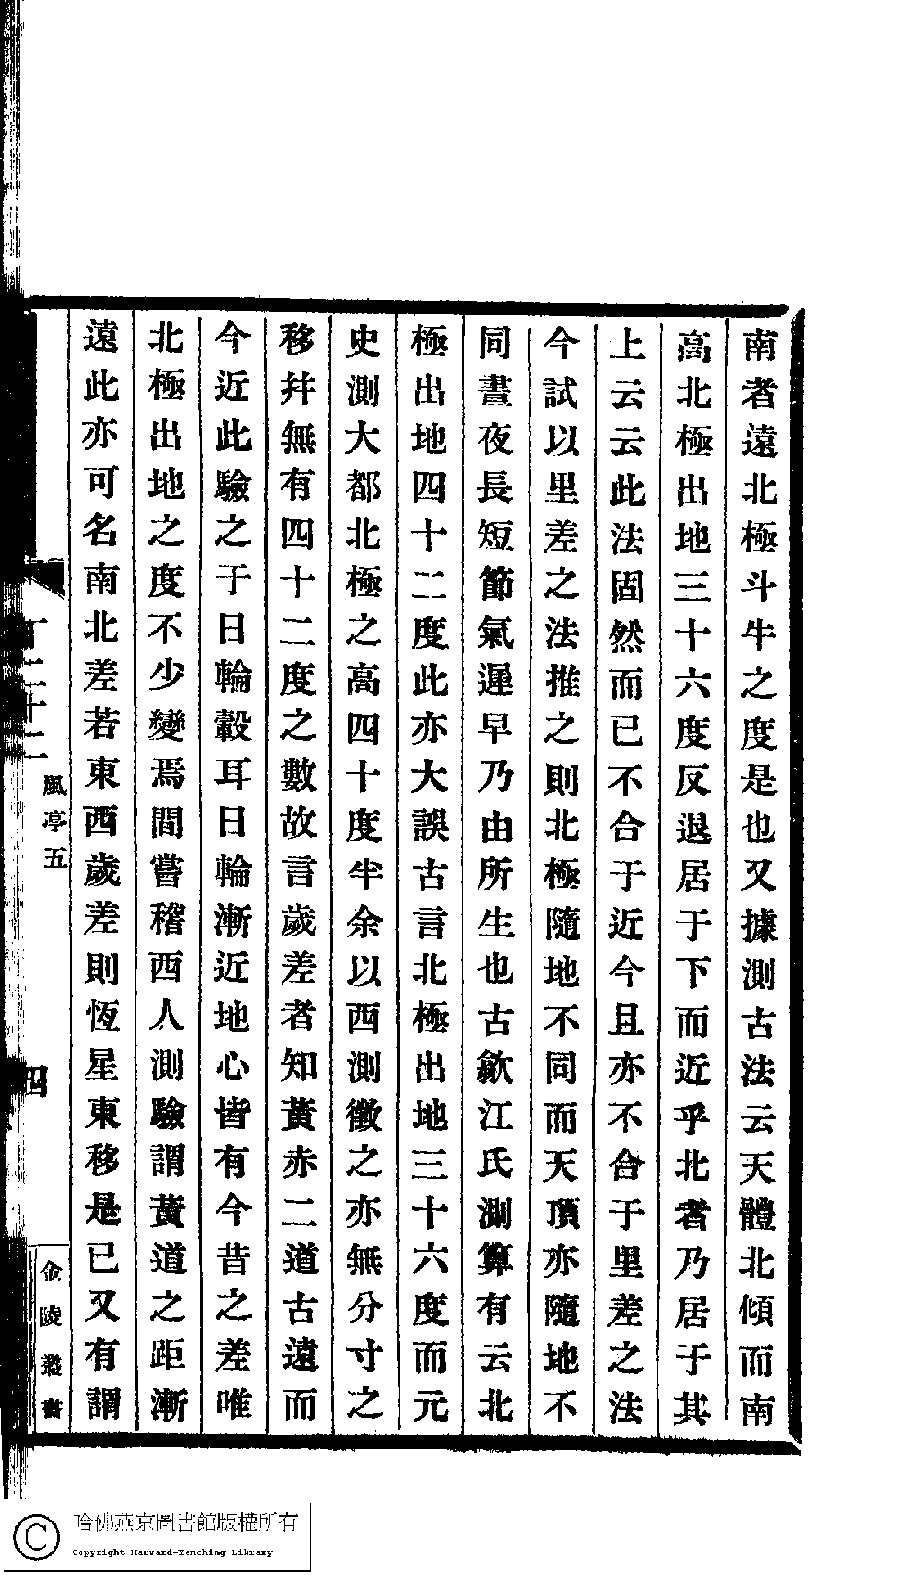 南者遠北極斗牛之度是也又據測古法云天體北傾而南
高北極出地三十六度反退居于下而近乎北者乃居于其
上云云此法固然而已不合于近今且亦不合于里差之法
今試以里差之法推之則北極隨地不同而天頂亦隨地不
同晝夜長短節氣遲早乃由所生也古歙江氏測算有云北
極出地四十二度此亦大誤古言北極出地三十六度而元
史測大都北極之高四十度半余以西測徵之亦無分寸之
移幷無有四十二度之數故言歲差者知黃赤二道古遠而
今近此驗之于日輪轂耳日輪漸近地心皆有今昔之差唯
北極出地之度不少變焉間嘗稽西人測驗謂黃道之距漸
遠此亦可名南北差若東西歲差則恆星東移是已又有謂
風亭五
四
金陵叢書
哈佛燕京圖書館版權所有
Copyright Harvard-Yenching Library